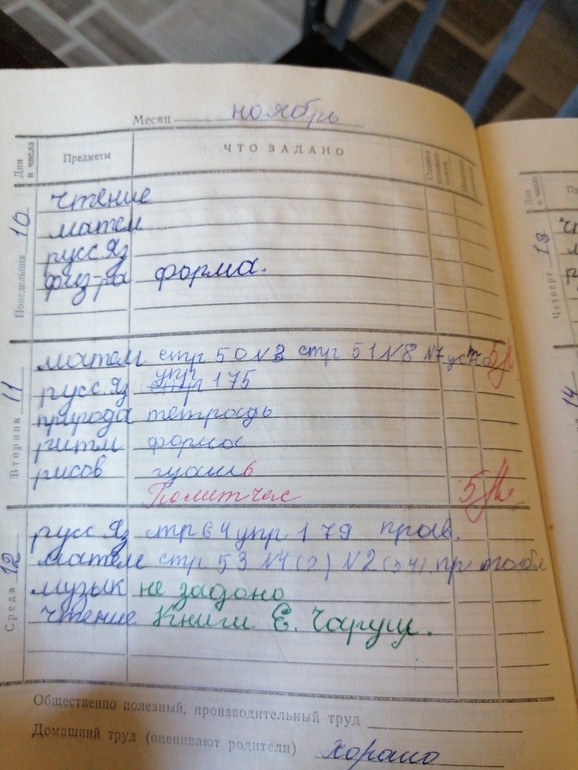 Месяц ноябрь
Дни и числа Предметы ЧТО ЗАДАНО
Понедельник 10
чтение
матем
русс яз
физ-ра форма.
Вторник 11
матем стр 50 N3 стр 51 N8 N7 устно 5
русс яз упр 175
природа тетрадь
ритм форма
рисов гуашь
Политчас 5
Среда 12
русс яз стр 64 упр 179 прав.
матем стр 53 N4(2) N2(3 4) пр табл
музык не задано
чтение Книги Е. Чаруш.
Общественно полезный, производительный труд
Домашний труд (оценивают родители) хорошо
Дни и числа
Четверг 13
14